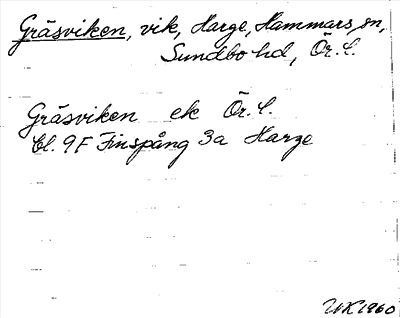 Gräsviken, vik, Harge, Hammars sn,
Sundbo hd, Ör. l.
Gräsviken ek Ör. l.
bl. 9F Finspång 3a Harge
UK 1960